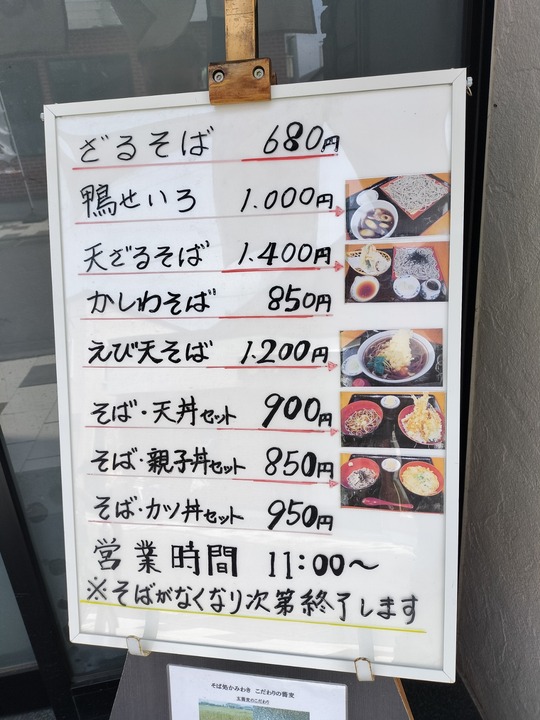 ざるそば 680円
鴨せいろ 1.000円
天ざるそば 1.400円
かしわそば 850円
えび天そば 1.200円
そば・天丼セット 900円
そば・親子丼セット 850円
そば・カツ丼セット 950円
営業時間 11:00~
※そばがなくなり次第終了します
そば処かみわき こだわりの蕎麦